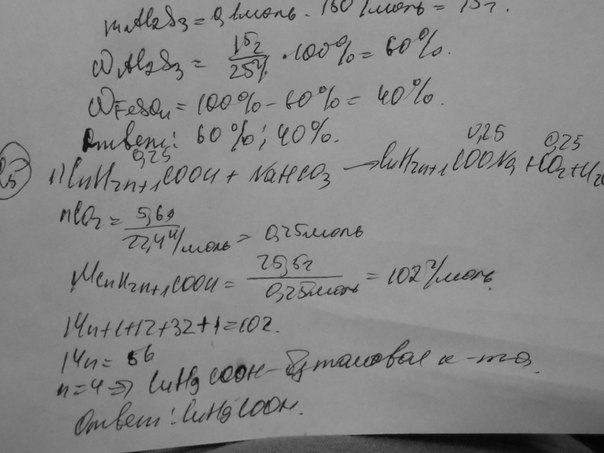 mAl2S3 = 0,1моль · 150 г/моль = 15г.
ωAl2S3 = 15г / 25г · 100% = 60%.
ω = 100% - 60% = 40%.
Ответ: 60%; 40%.
0,25 0,25 0,25
25 CnH2n+1COOH + NaHCO3 → CnH2n+1COONa + CO2 + H2O
nCO2 = 5,6л / 22,4 л/моль = 0,25моль
MCnH2n+1COOH = 25,5г / 0,25моль = 102 г/моль.
14n+1+12+32+1=102.
14n = 56
n=4 ⇒ C4H9COOH - к-та.
Ответ: C4H9COOH.